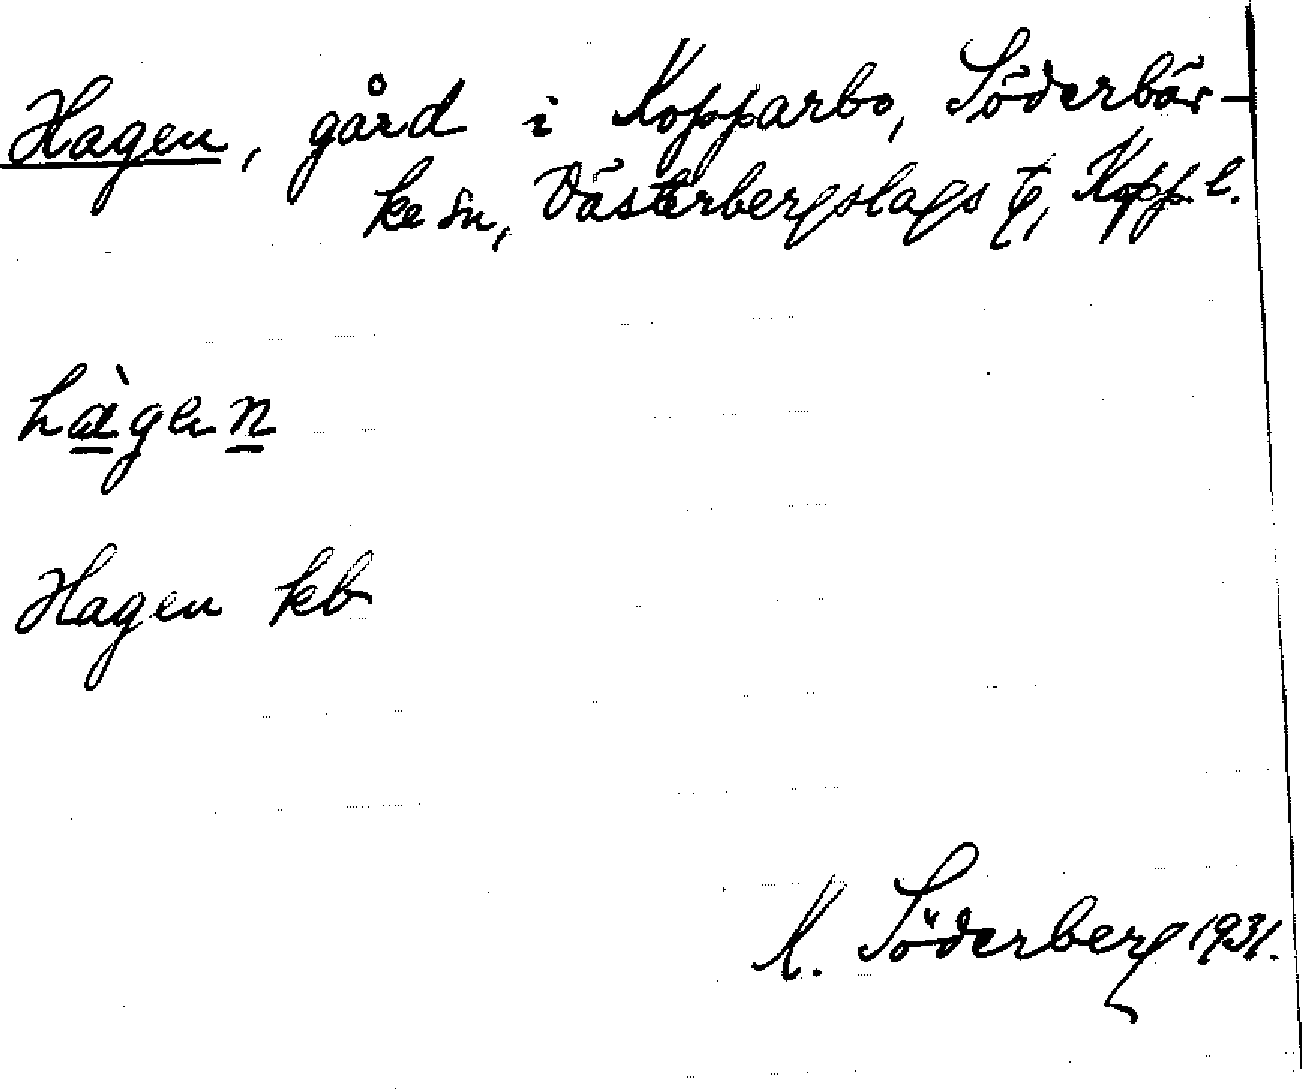 Hagen, gård i Kopparbo, Söderbär-
ke sn, Västerbergslags tg, Kopp. l.
hàgen
Hagen kb
K. Söderberg 1931.